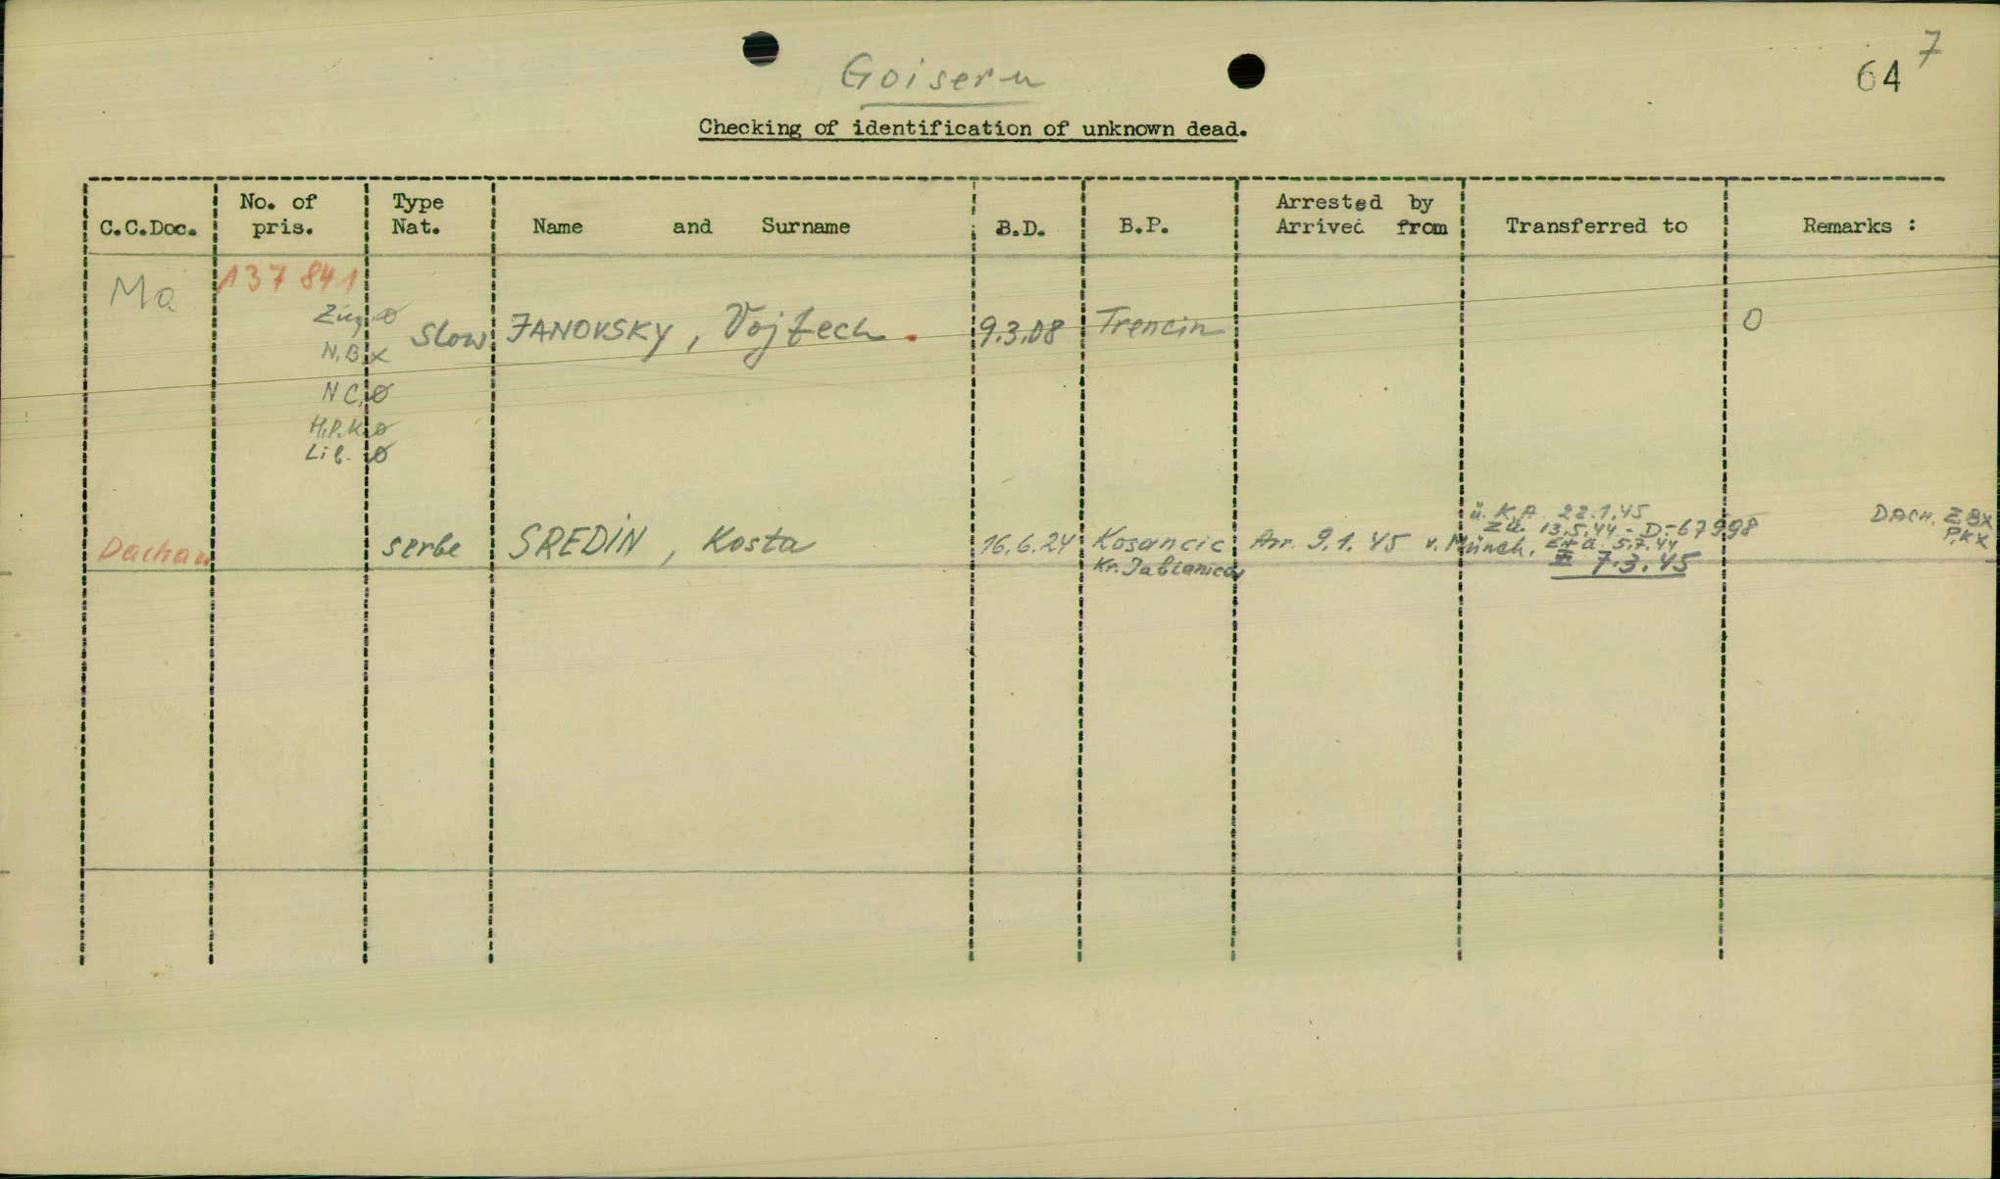 7
64
Goisern
Checking of identification of unknown dead.
C.C.Doc. No. of pris. Type Nat. Name and Surname B.D. B.P. Arrested by Arrived from Transferred to Remarks :
Ma 137 841
Zug Ø
Slow JANOVSKY, Vojtech. 9.3.08 Trencin O
N.B x
N C, Ø
H.P.K. Ø
Lib. Ø
ü. K.A. 22.1.45
zu. 13.5.44 - D.-67998 DACH. ZBX
Dachau serbe SREDIN, Kosta 16.6.24 Kosancic Arr. 9.1.45 v. Münch. 5.7.44 P.K X
Kr. Jablanica 7.3.45